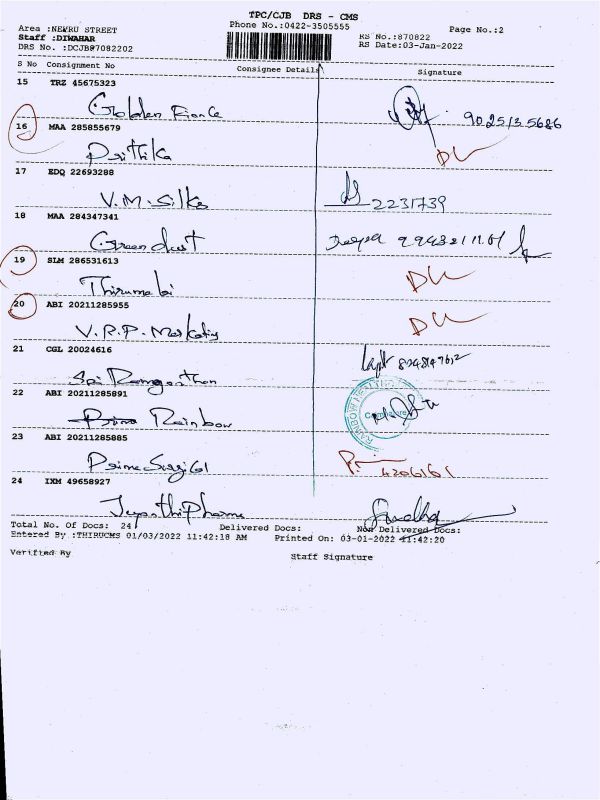 TPC/CJB DRS - CMS
Area :NEHRU STREET Phone No.:0422-3505555 Page No.:2
Staff :DIWAHAR RS No.:870822
DRS No. :DCJB87082202 RS Date:03-Jan-2022
S No Consignment No Consignee Details Signature
15 TRZ 45675323
Golden 9025135686
16 MAA 285855679
Prithika DL
17 EDQ 22693288
V.M. Silks 2231739
18 MAA 284347341
Green dust Deepa
19 SLM 286531613
Thirumalai DL
20 ABI 20211285955
V.R.P. Marketing DL
21 CGL 20024616
Sri Ranganathan
22 ABI 20211285891
Prime Rainbow
RAINBOW
23 ABI 20211285885
Prime Surgical 4206161
24 IXM 49658927
Jeyanthi Pharma Sudha
Total No. Of Docs: 24 Delivered Docs: Non Delivered Docs:
Entered By :THIRUCMS 01/03/2022 11:42:18 AM Printed On: 03-01-2022 11:42:20
Verified By Staff Signature